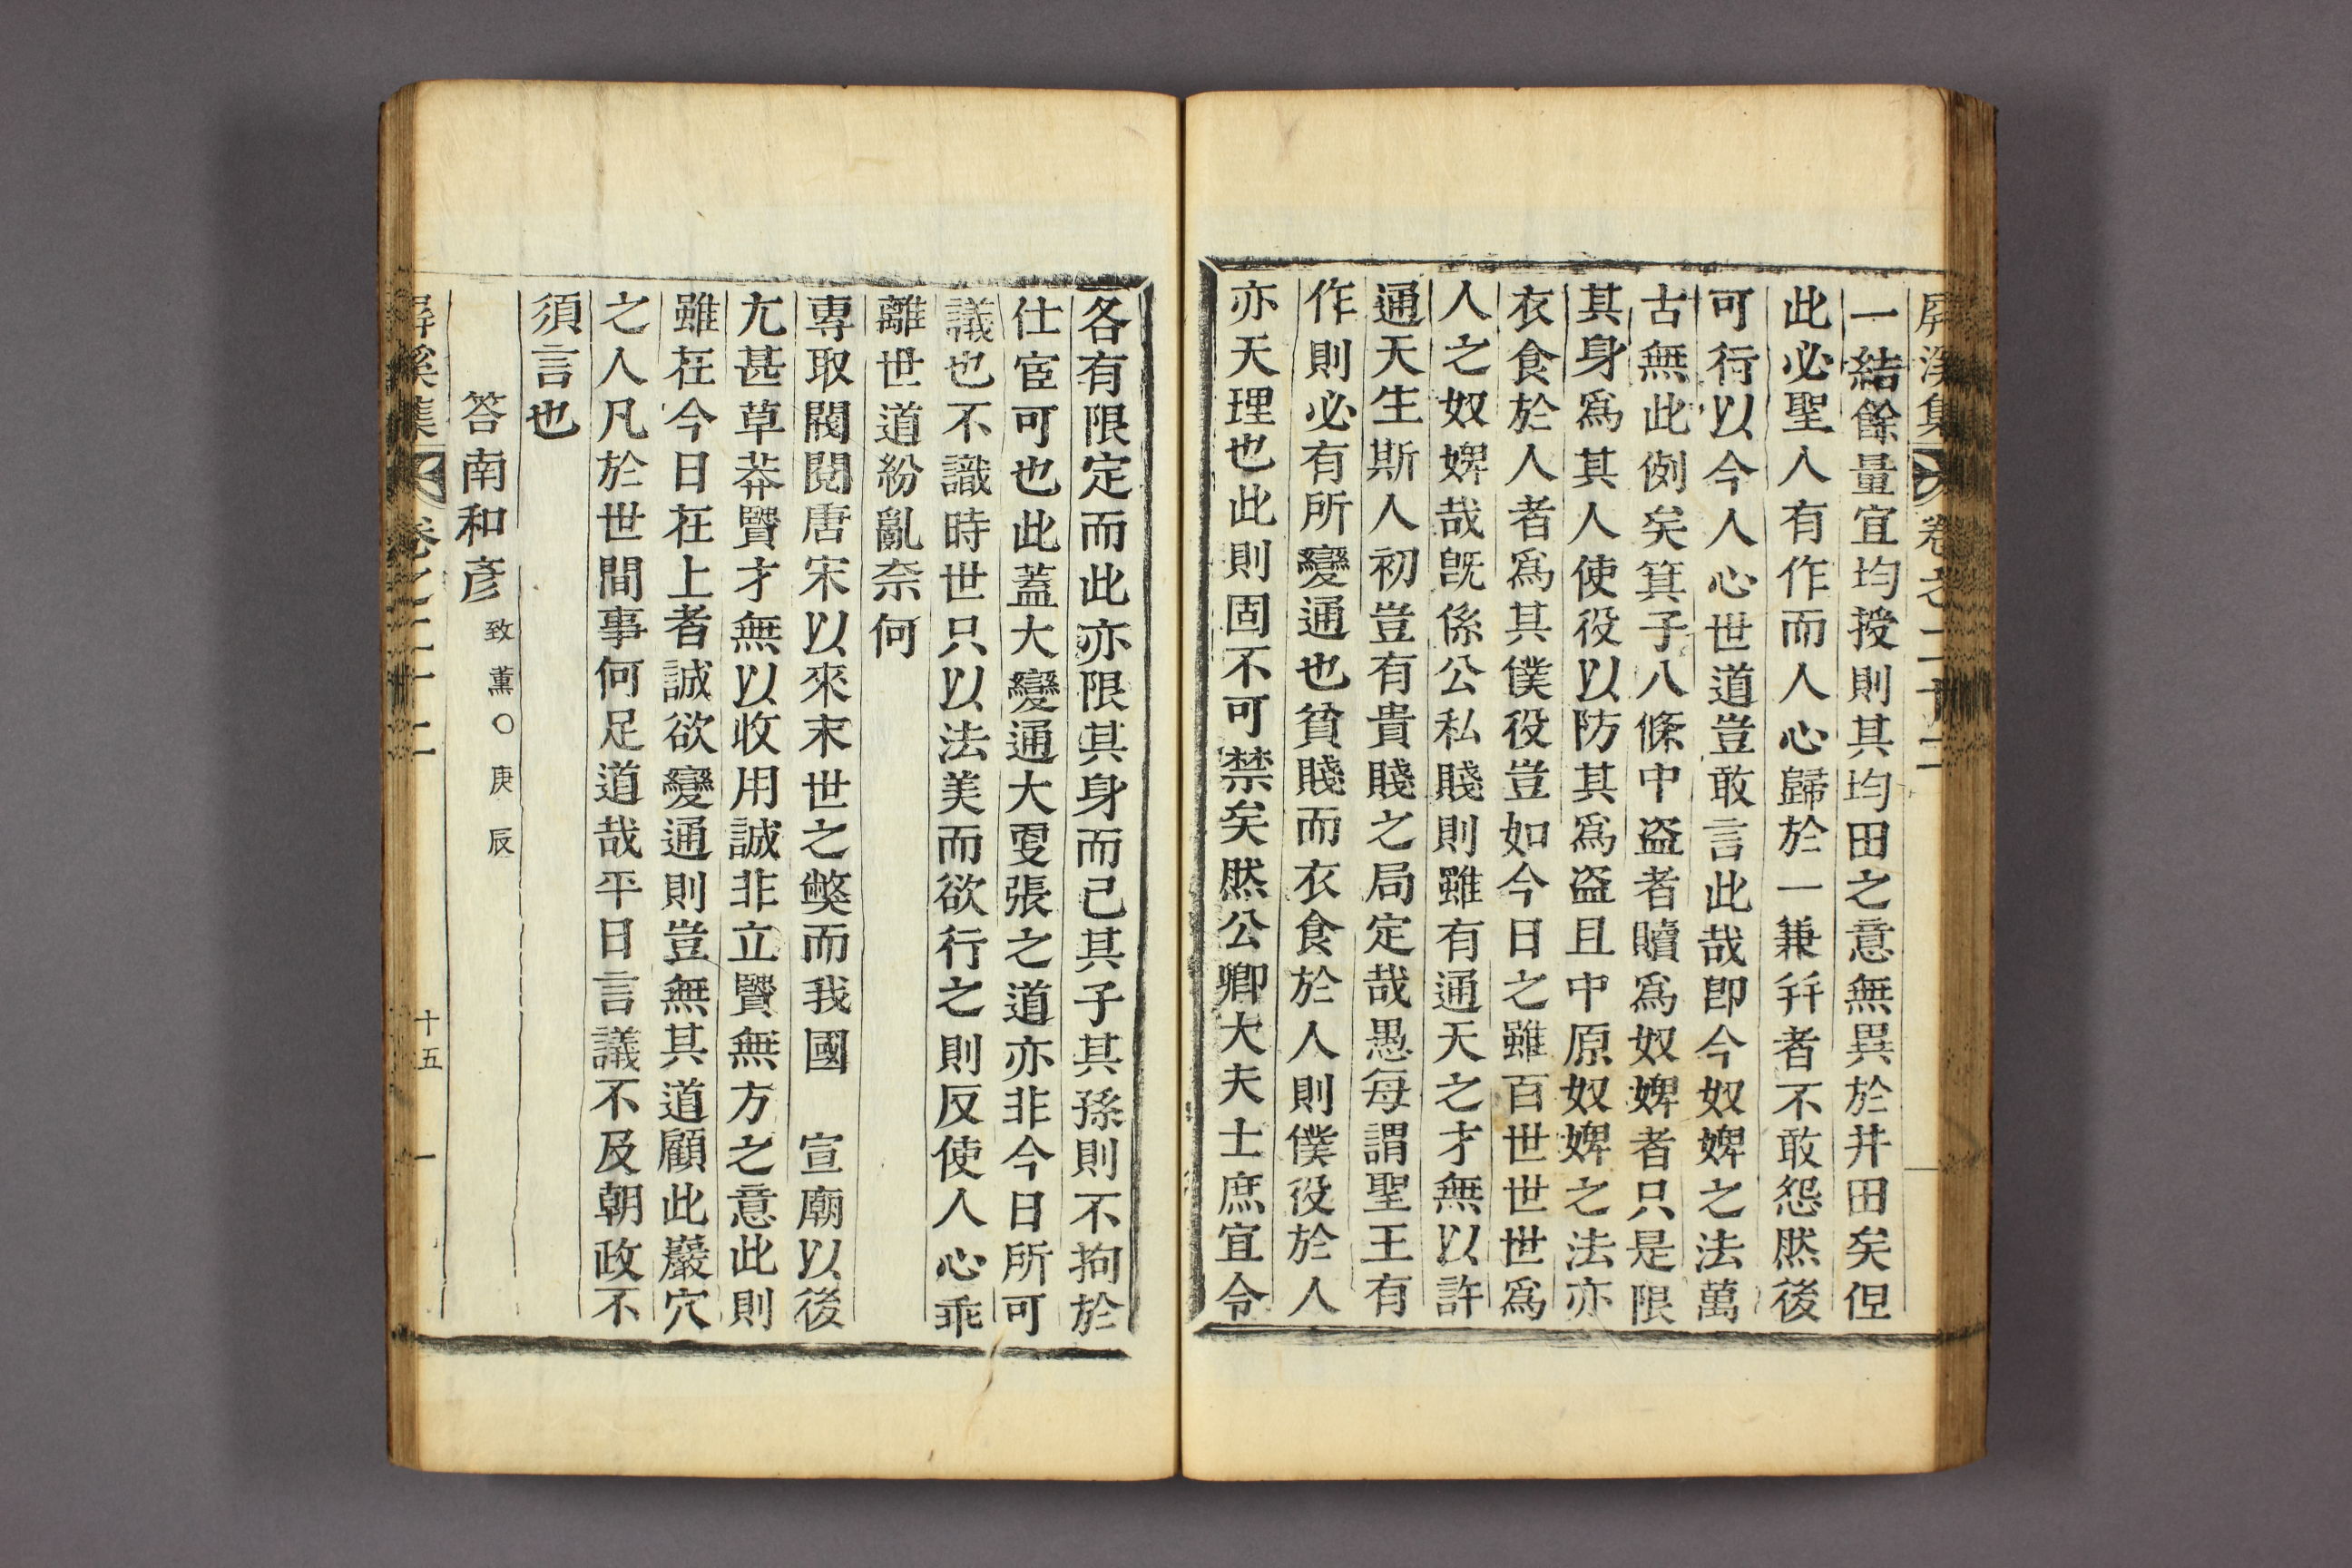 屏溪集 卷之二十二
一結餘量宜均授則其均田之意無異於井田矣但
此必聖人有作而人心歸於一兼幷者不敢怨然後
可行以今人心世道豈敢言此哉卽今奴婢之法萬
古無此例矣箕子八條中盗者贖爲奴婢者只是限
其身爲其人使役以防其爲盗且中原奴婢之法亦
衣食於人者爲其僕役豈如今日之雖百世世世爲
人之奴婢哉旣係公私賤則雖有通天之才無以許
通天生斯人初豈有貴賤之局定哉愚每謂聖王有
作則必有所變通也貧賤而衣食於人則僕役於人
亦天理也此則固不可禁矣然公卿大夫士庶宜令
各有限定而此亦限其身而己其子其孫則不拘於
仕宦可也此蓋大變通大更張之道亦非今日所可
議也不識時世只以法美而欲行之則反使人心乖
離世道紛亂奈何
專取閥閱唐宋以來末世之弊而我國 宣廟以後
尤甚草莽賢才無以收用誠非立賢無方之意此則
雖在今日在上者誠欲變通則豈無其道顧此巖穴
之人凡於世間事何足道哉平日言議不及朝政不
須言也
答南和彦 致薰○庚辰
屏溪集 卷之二十二 十五